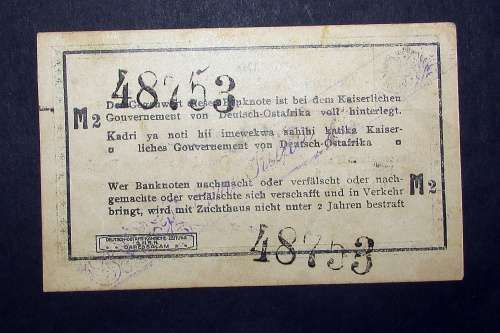 48753
Der Gegenwert dieser Banknote ist bei dem Kaiserlichen
M2 Gouvernement von Deutsch-Ostafrika voll hinterlegt.
Kadri ya noti hii imewekwa sahihi katika Kaiser-
liches Gouvernement von Deutsch-Ostafrika
Wer Banknoten nachmacht oder verfälscht oder nach-
gemachte oder verfälschte sich verschafft und in Verkehr M2
bringt, wird mit Zuchthaus nicht unter 2 Jahren bestraft
DEUTSCH-OSTAFRIKANISCHE ZEITUNG
DARESSALAM
48753